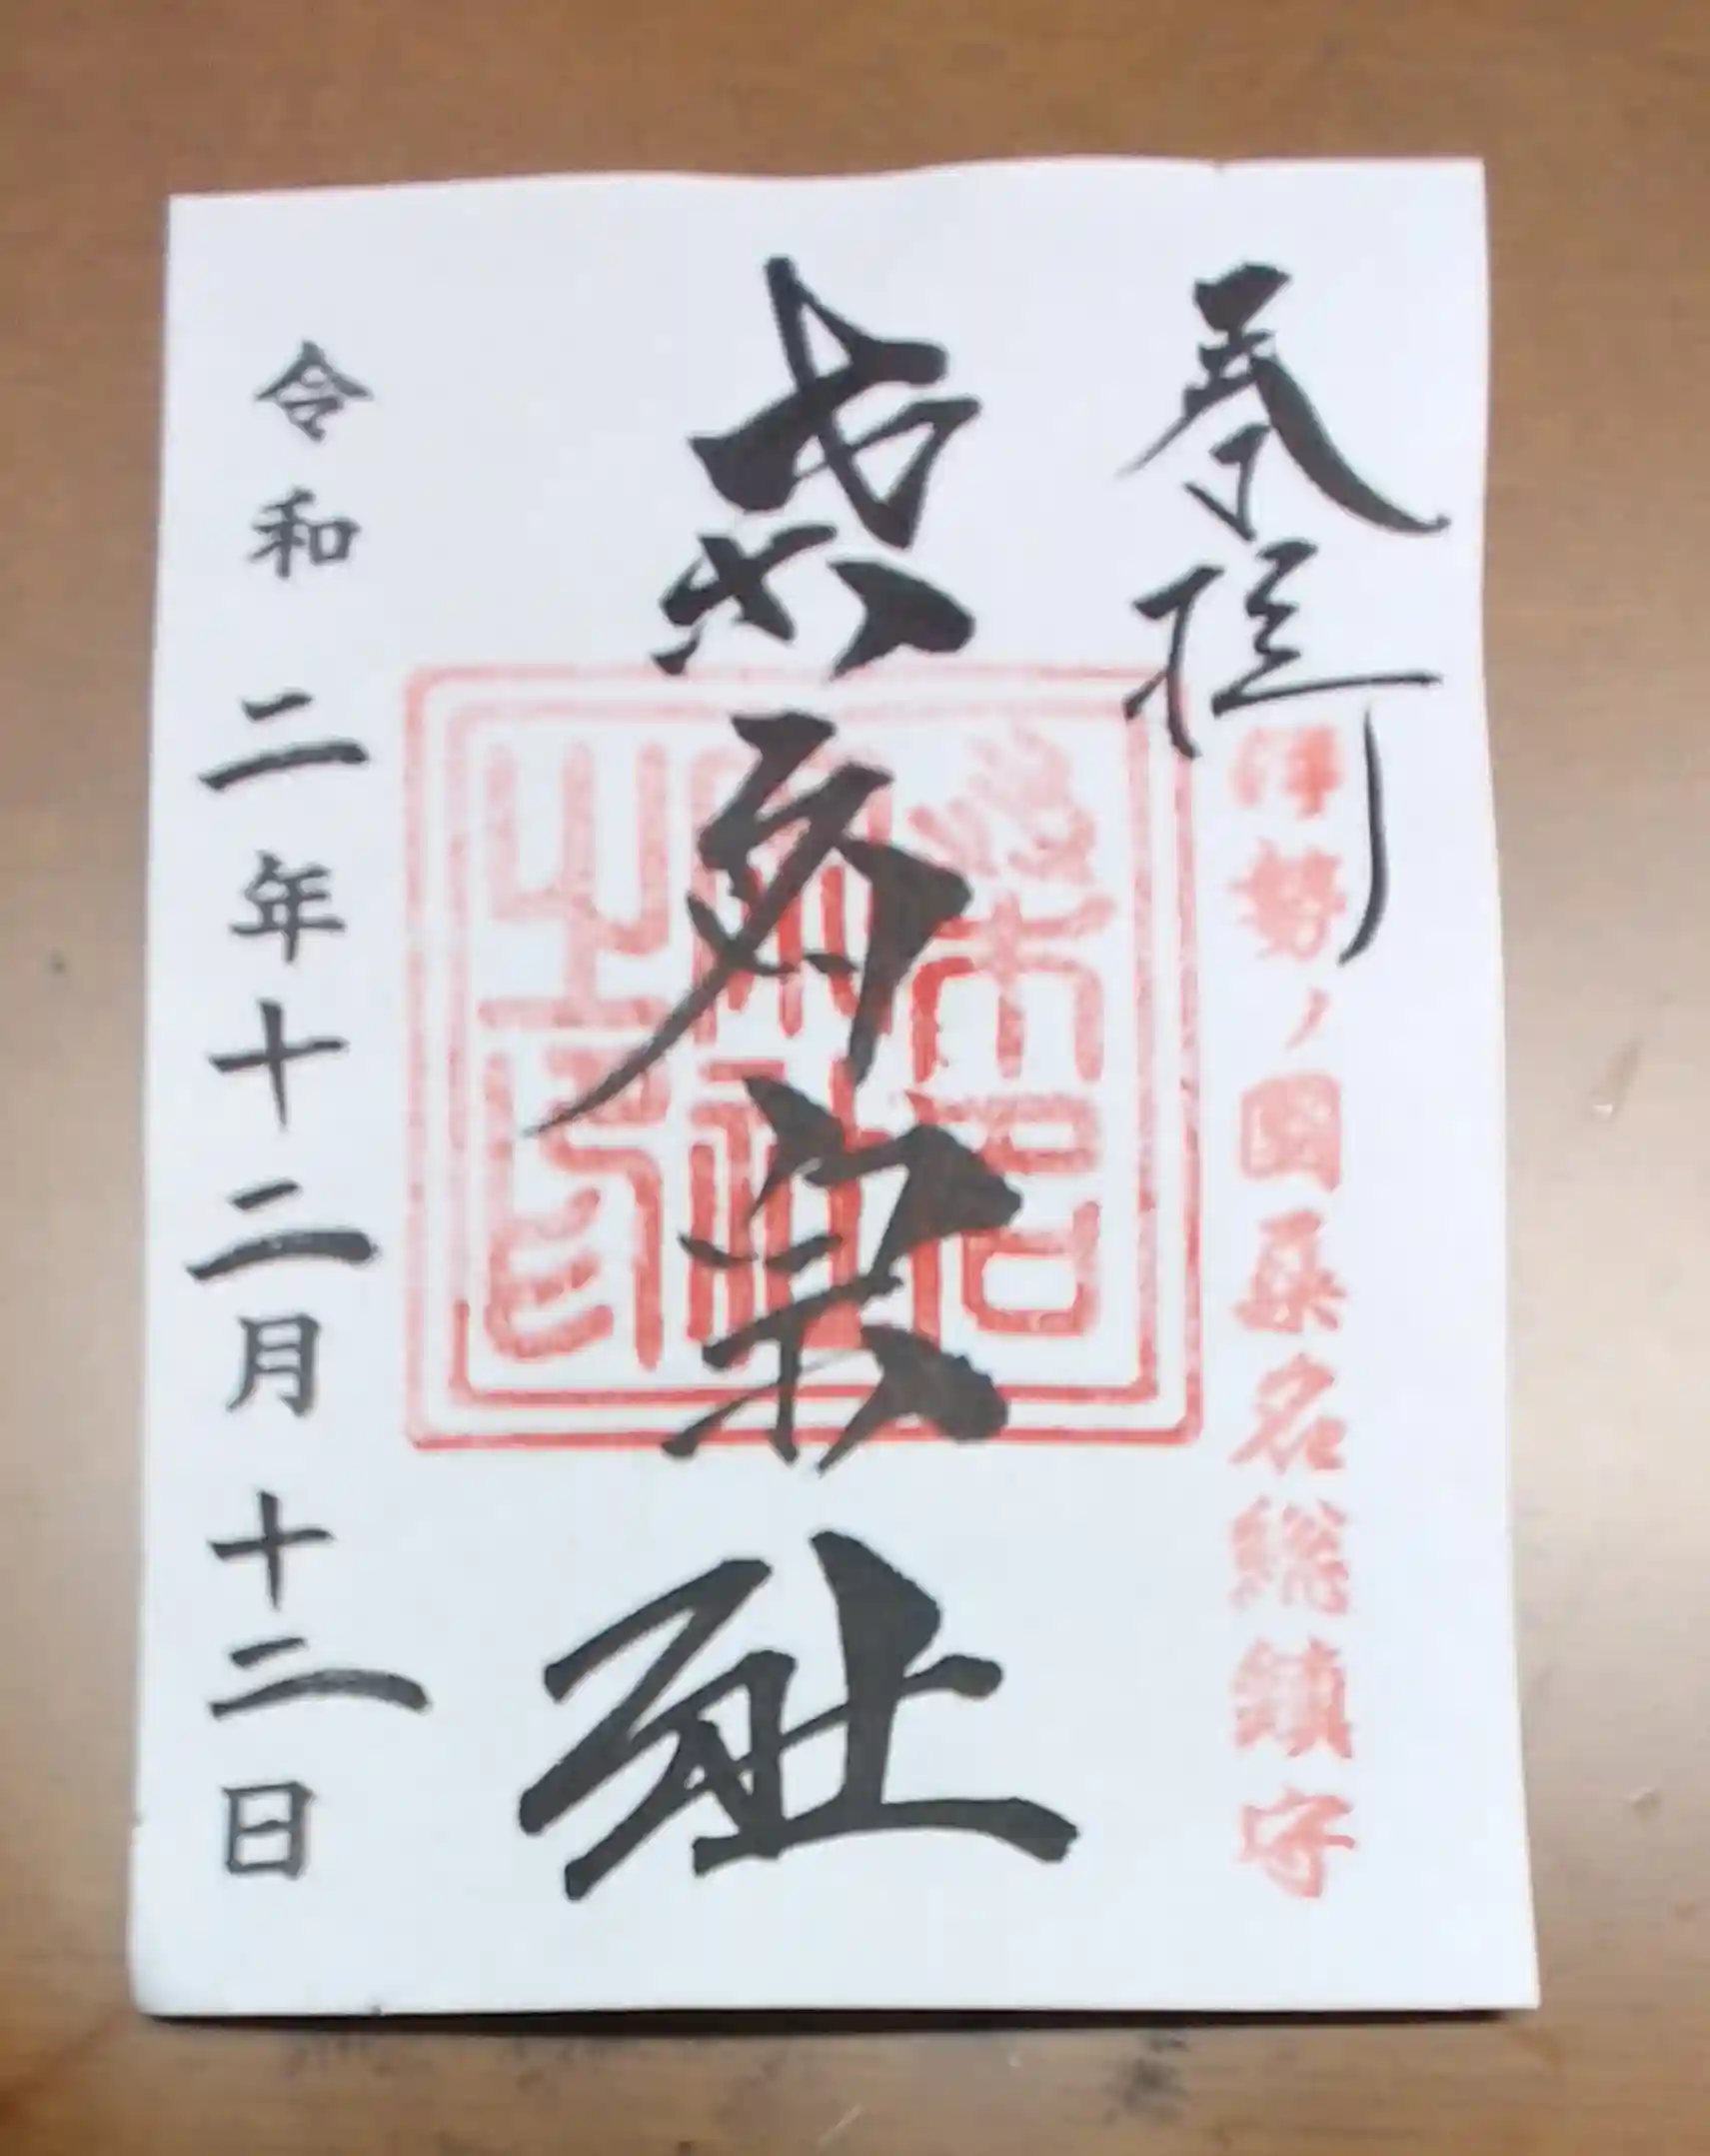 奉拝
伊勢ノ國桑名総鎮守
桑名宗社
桑名宗社之印
令和二年十二月十二日